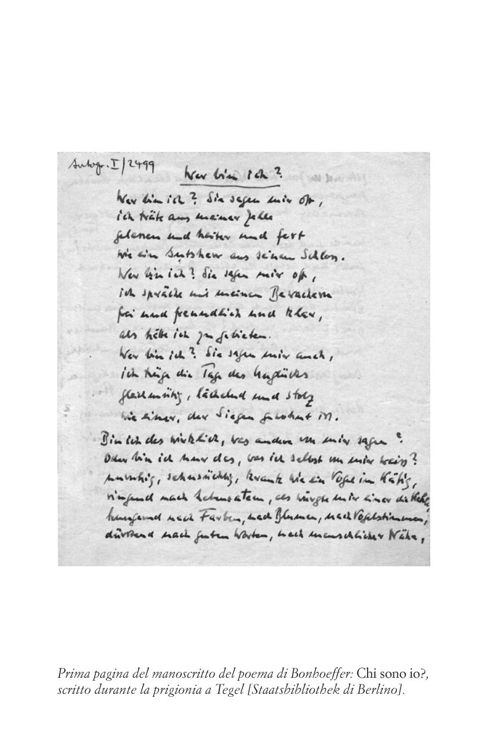 Autogr. I/2499
Wer bin ich?
Wer bin ich? Sie sagen mir oft,
ich träte aus meiner Zelle
gelassen und heiter und fest
wie ein Gutsherr aus seinem Schloss.
Wer bin ich? Sie sagen mir oft,
ich spräche mit meinen Bewachern
frei und freundlich und klar,
als hätte ich zu gebieten.
Wer bin ich? Sie sagen mir auch,
ich trüge die Tage des Unglücks
gleichmütig, lächelnd und stolz
wie einer, der Siegen gewohnt ist.
Bin ich das wirklich, was andere von mir sagen?
Oder bin ich nur das, was ich selbst von mir weiss?
unruhig, sehnsüchtig, krank wie ein Vogel im Käfig,
ringend nach Lebensatem, als würgte mir einer die Kehle,
hungernd nach Farben, nach Blumen, nach Vogelstimmen,
dürstend nach guten Worten, nach menschlicher Nähe,
Prima pagina del manoscritto del poema di Bonhoeffer: Chi sono io?,
scritto durante la prigionia a Tegel [Staatsbibliothek di Berlino].